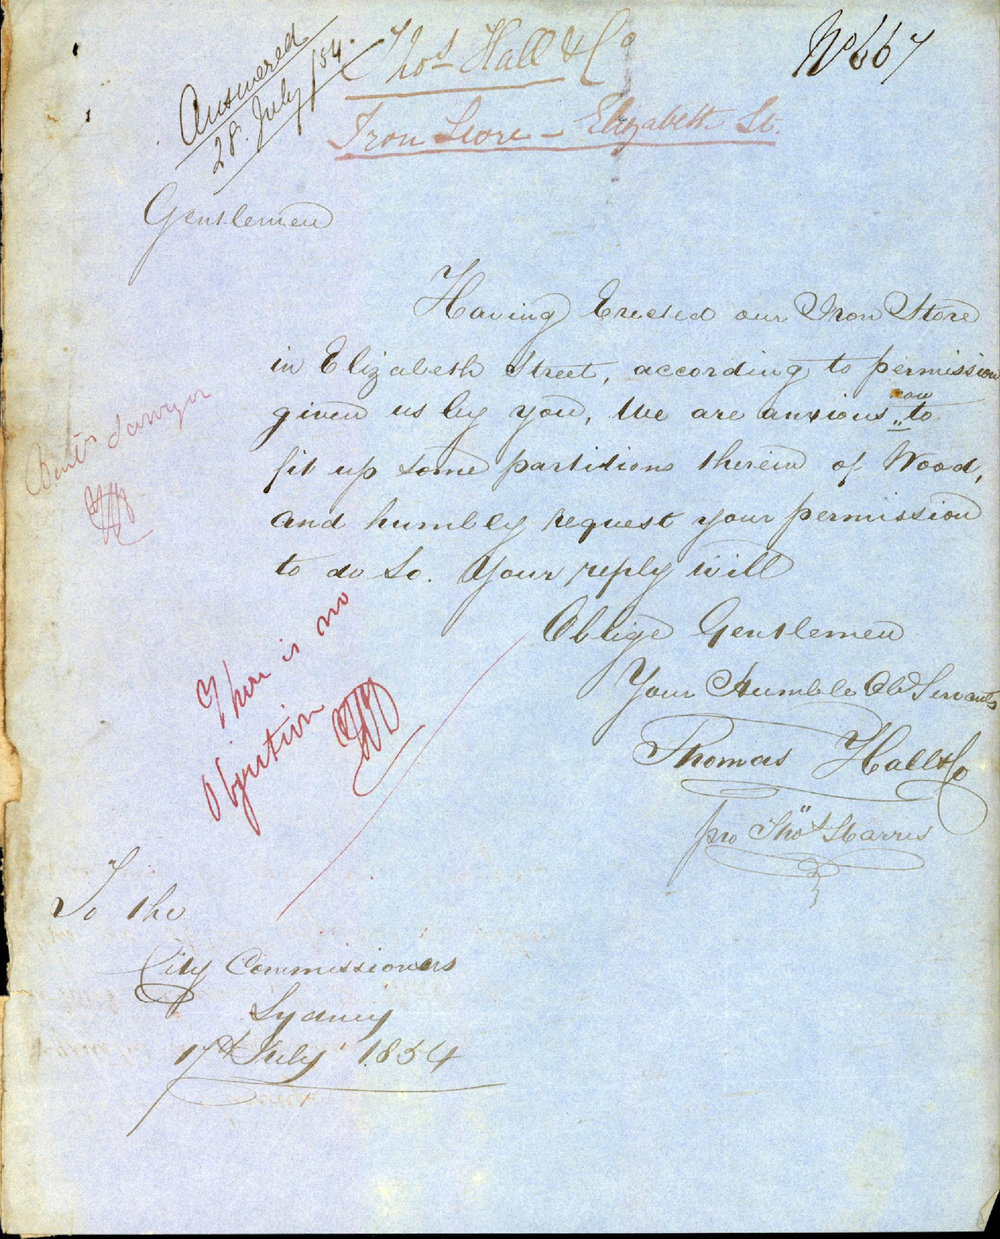 Answered
28 July /54.
Thos Hall & Co
No 667
Iron Store – Elizabeth St.
Gentlemen
Having Erected our Iron Store
in Elizabeth Street, according to permission
given us by you, We are anxious now to
fit up some partitions therein of Wood,
and humbly request your permission
to do so. Your reply will
Oblige Gentlemen
Your Humble Obt Servants
Thomas Hall & Co
pro Thos Harris
There is no
Objection
To the
City Commissioners
Sydney
17th July 1854